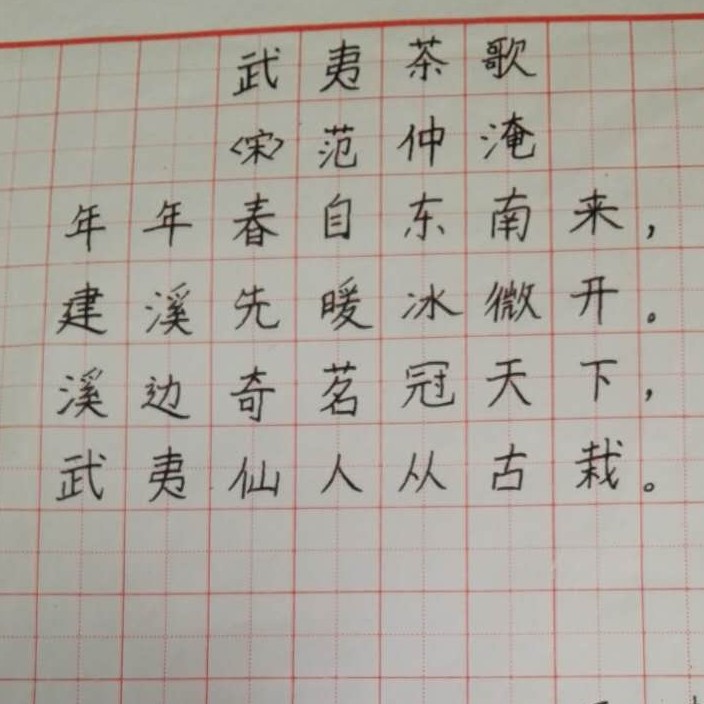 武夷茶歌
<宋>范仲淹
年年春自东南来，
建溪先暖冰微开。
溪边奇茗冠天下，
武夷仙人从古栽。